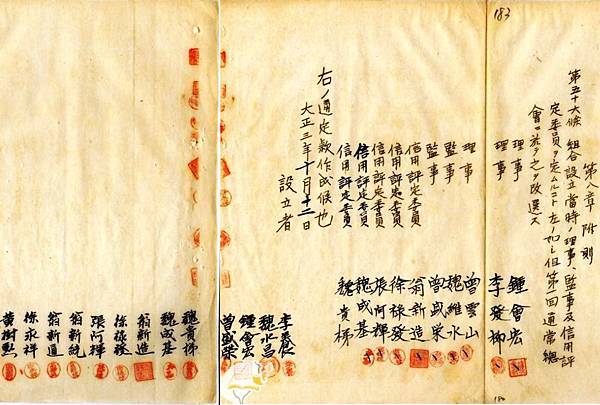 183
第八章 附則
第五十六條 組合設立當時ノ理事、監事及信用評
定委員ヲ定ムルコト左ノ如シ但第一回通常總
會ニ於テ之ヲ改選ス
理事 鍾會宏
理事 李發柳
理事 曾雲山
監事 魏維水
監事 曾盛榮
信用評定委員 翁新造
信用評定委員 徐祿發
信用評定委員 張阿禪
信用評定委員 魏成基
信用評定委員 魏貴梯
右ノ通定款作成候也
大正三年十月十三日
設立者
魏水昌
鍾會宏
曾盛榮
魏貴梯
魏成基
翁新造
徐祿發
張阿禪
翁新統
翁新道
徐永祥